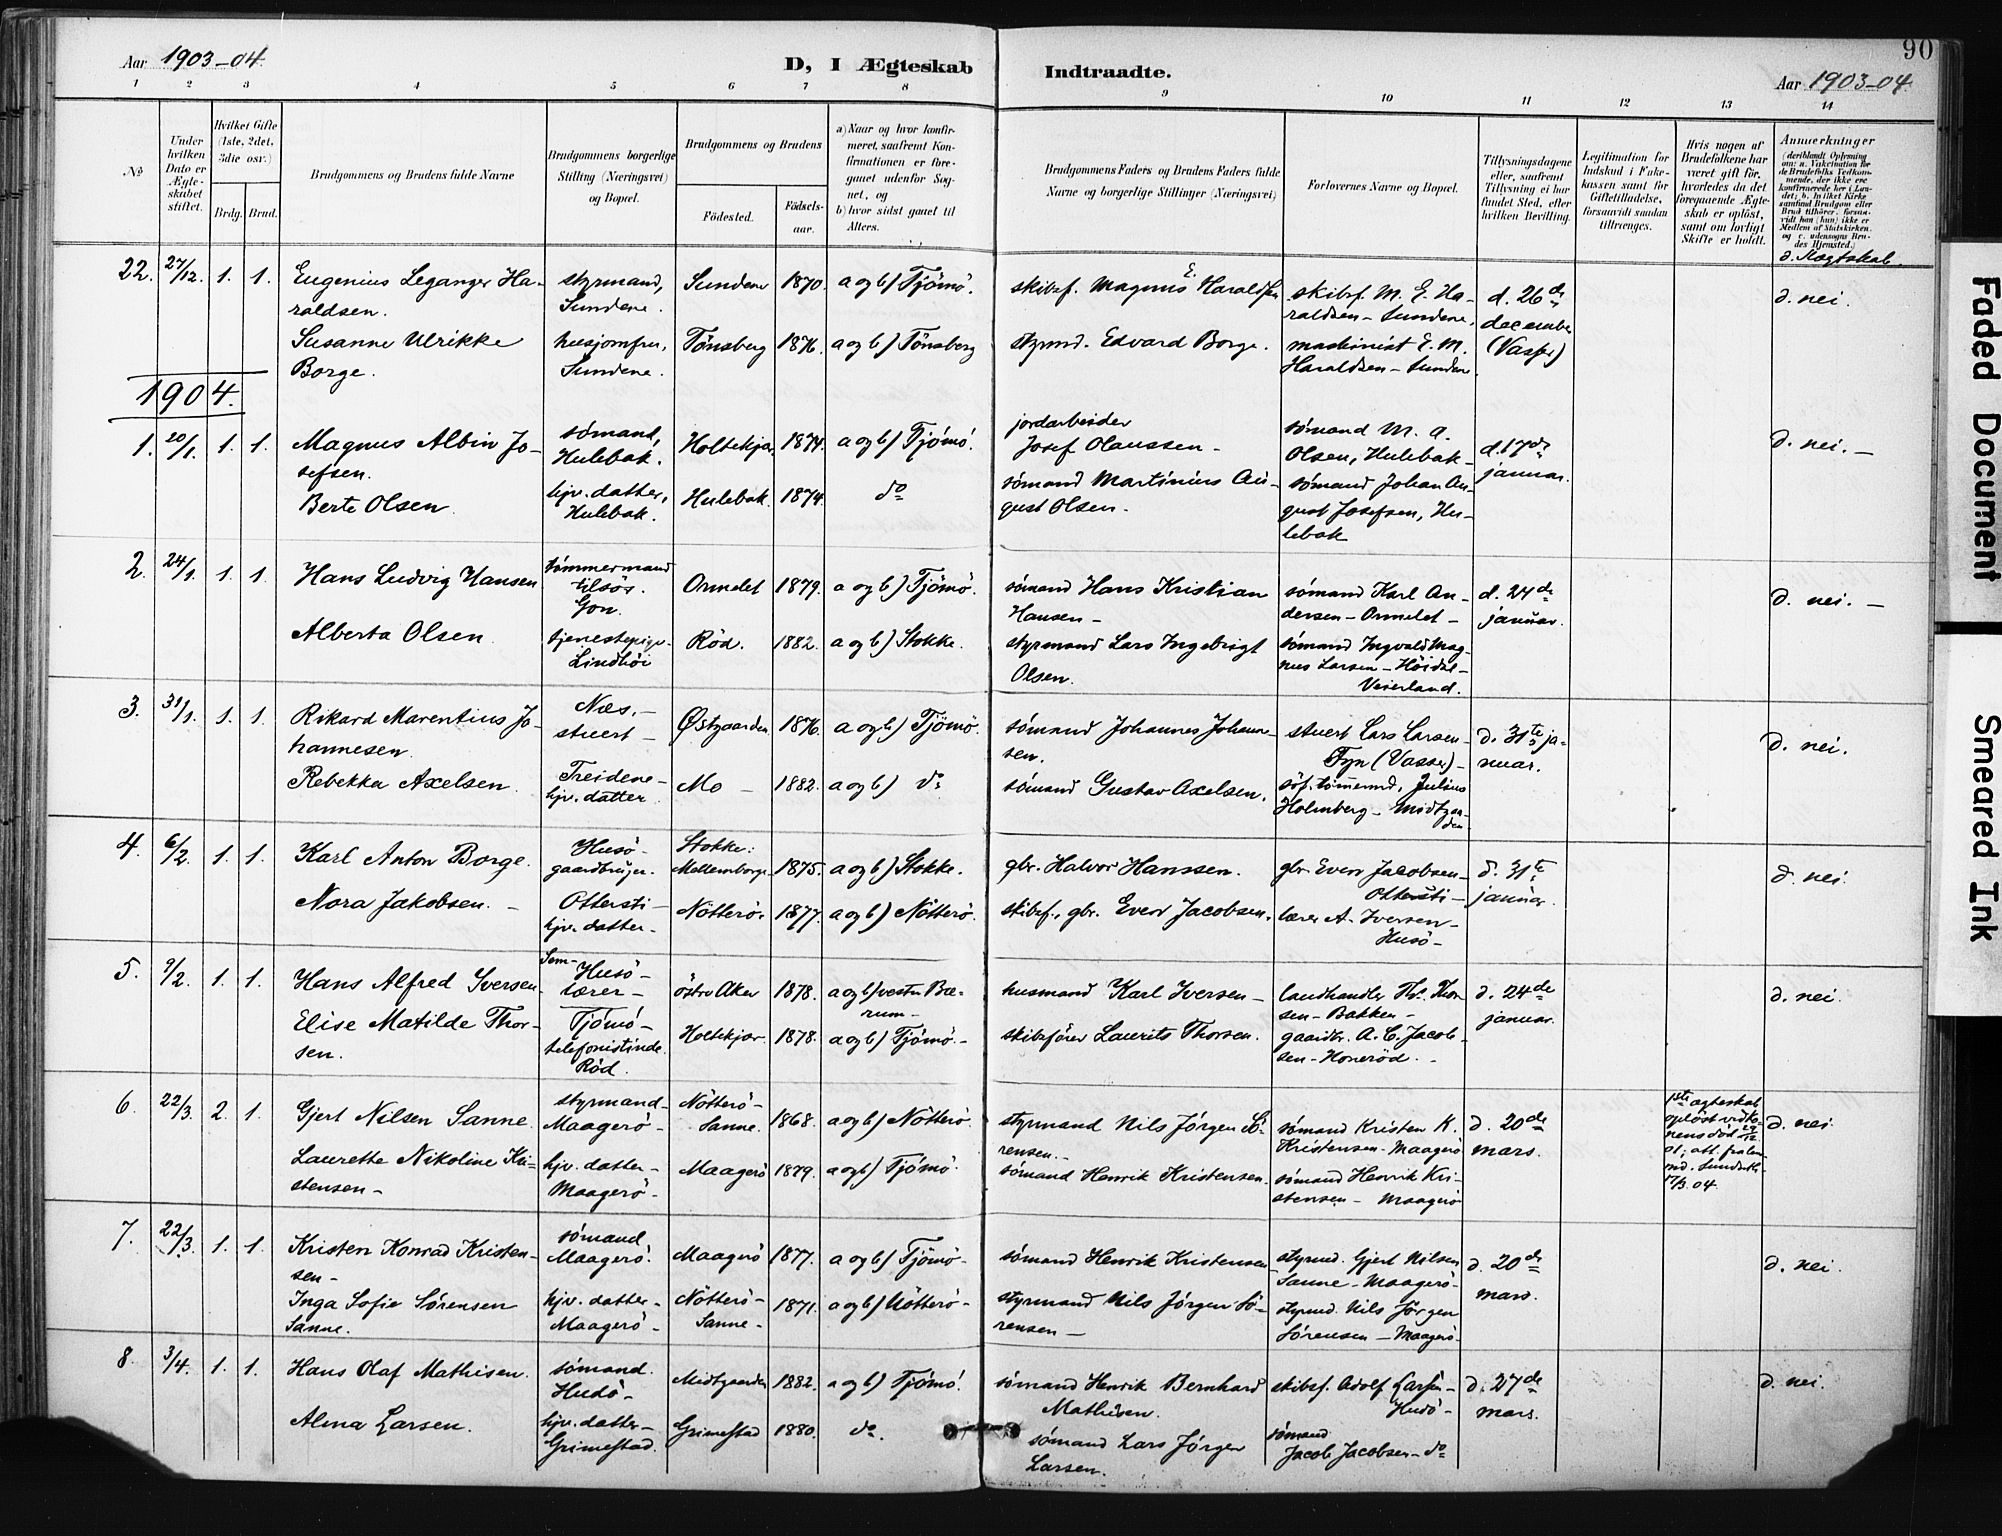 90
Aar 1903-04.
D, I Ægteskab Indtraadte.
Aar 1903-04.
1 2 3 4 5 6 7 8 9 10 11 12 13 14
No
Under hvilken Dato er Ægteskabet stiftet.
Hvilket Gifte (1ste, 2det, 3die osv.)
Brdg. Brud.
Brudgommens og Brudens fulde Navne
Brudgommens borgerlige Stilling (Næringsvei) og Bopæl.
Brudgommens og Brudens
Fødested.
Fødsels-aar.
a) Naar og hvor konfirmeret, saafremt Konfirmationen er foregaaet udenfor Sognet, og
b) hvor sidst gaaet til Alters.
Brudgommens Faders og Brudens Faders fulde Navne og borgerlige Stillinger (Næringsvei)
Forlovernes Navne og Bopæl.
Tillysningsdagene eller, saafremt Tillysning ei har fundet Sted, efter hvilken Bevilling.
Legitimation for Indskud i Enkekassen samt for Giftetilladelse, forsaavidt saadan tiltrænges.
Hvis nogen af Brudefolkene har været gift før, hvorledes da det foregaaende Ægteskab er opløst, samt om lovligt Skifte er holdt.
Anmærkninger
d. Slægtskab.
22. 27/12. 1. 1. Eugenius Leganger Haraldsen.
styrmand, Sundene.
Sundene 1870. a og b) Tjömö.
skibsf. Magnus E. Haraldsen
skibsf. M. E. Haraldsen - Sundene.
d. 26de december (Vasser)
d. nei.
Susanne Ulrikke Borge.
husjomfru, Sundene.
Tönsberg 1876. a og b) Tönsberg
styrmd. Edvard Borge.
maskinist E. M. Haraldsen - Sundene
1904.
1. 20/1. 1. 1. Magnus Albin Josefsen.
sömand, Hulebak.
Holtekjær 1874. a og b) Tjömö.
jordarbeider Josef Olaussen -
sömand M. A. Olsen, Hulebak -
d. 17de januar.
d. nei. -
Berte Olsen.
hjv. datter, Hulebak.
Hulebak 1874. do
sömand Martinius August Olsen -
sömand Johan August Josefsen, Hulebak
2. 24/1. 1. 1. Hans Ludvig Hansen
tömmermand tilsös. Gon.
Ormelet 1879. a og b) Tjömö.
sömand Hans Kristian Hansen -
sömand Karl Andersen - Ormelet -
d. 24de januar.
d. nei. -
Alberta Olsen.
tjenestepige - Lindhöi
Röd. 1882. a og b) Stokke.
styrmand Lars Ingebrigt Olsen.
sömand Ingvald Magnus Larsen - Höidal - Veierland.
3. 31/1. 1. 1. Rikard Marentius Johannesen
Næs. - stuert -
Østgaarden 1876. a og b) Tjömö.
sömand Johannes Johannesen.
stuert Lars Larsen - Fyn (Vasser) -
d. 31te januar.
d. nei.
Rebekka Axelsen.
Treidene - hjv. datter
Mo - 1882. a og b) do
sömand Gustav Axelsen.
söf. tömermd. Julius Holmberg - Midtgaarden
4. 6/2. 1. 1. Karl Anton Borge.
Husö - gaardbruger.
Stokke: Mellemborge 1875. a og b) Stokke.
gbr. Halvor Hanssen.
gbr. Even Jacobsen - Ottersti -
d. 31te januar.
d. nei.
Nora Jakobsen. -
Ottersti - hjv. datter -
Nötterö. 1877. a og b) Nötterö.
skibsf., gbr. Even Jacobsen.
lærer A. Iversen - Husö -
5. 9/2. 1. 1. Hans Alfred Iversen.
Sem - Husö - lærer -
östre Aker 1878. a og b) vestre Bærum -
husmand Karl Iversen -
landhandler Th. Thorsen - Bakken -
d. 24de januar.
d. nei.
Elise Matilde Thorsen.
Tjömö - telefonistinde. Röd.
Holtekjær 1878. a og b) Tjömö. -
skibsförer Laurits Thorsen.
gaardbr. A. C. Jacobsen - Honeröd. -
6. 22/3. 2. 1. Gjert Nilsen Sanne.
styrmand - Maagerö -
Nötterö - Sanne. 1868. a og b) Nötterö.
styrmand Nils Jörgen Sörensen. -
sömand Kristen K. Kristensen - Maagerö
d. 20de mars.
1ste ægteskab oplöst ved konens död 29/12 01; att. fra lensmd. Sunderth. 17/3. 04.
d. nei.
Laurette Nikoline Kristensen -
hjv. datter - Maagerö -
Maagerö 1879. a og b) Tjömö.
sömand Henrik Kristensen.
sömand Henrik Kristensen - Maagerö
7. 22/3. 1. 1. Kristen Konrad Kristensen -
sömand Maagerö.
Maagerö 1877. a og b) Tjömö -
sömand Henrik Kristensen
styrmd. Gjert Nilsen Sanne - Maagerö -
d. 20de mars.
d. nei.
Inga Sofie Sørensen Sanne.
hjv. datter - Maagerö -
Nötterö - Sanne - 1871. a og b) Nötterö -
styrmand Nils Jörgen Sörensen -
styrmd. Nils Jörgen Sörensen - Maagerö -
8. 3/4. 1. 1. Hans Olaf Mathisen.
sömand. Hudö -
Midtgaarden 1882. a og b) Tjömö.
sömand Henrik Bernhard Mathisen.
skibsf. Adolf Larsen - Hudö -
d. 27de mars.
d. nei.
Alma Larsen.
hjv. datter - Grimestad.
Grimestad 1880. do.
sömand Lars Jörgen Larsen.
sömand Jacob Jacobsen - do
Faded Document
Smeared Ink